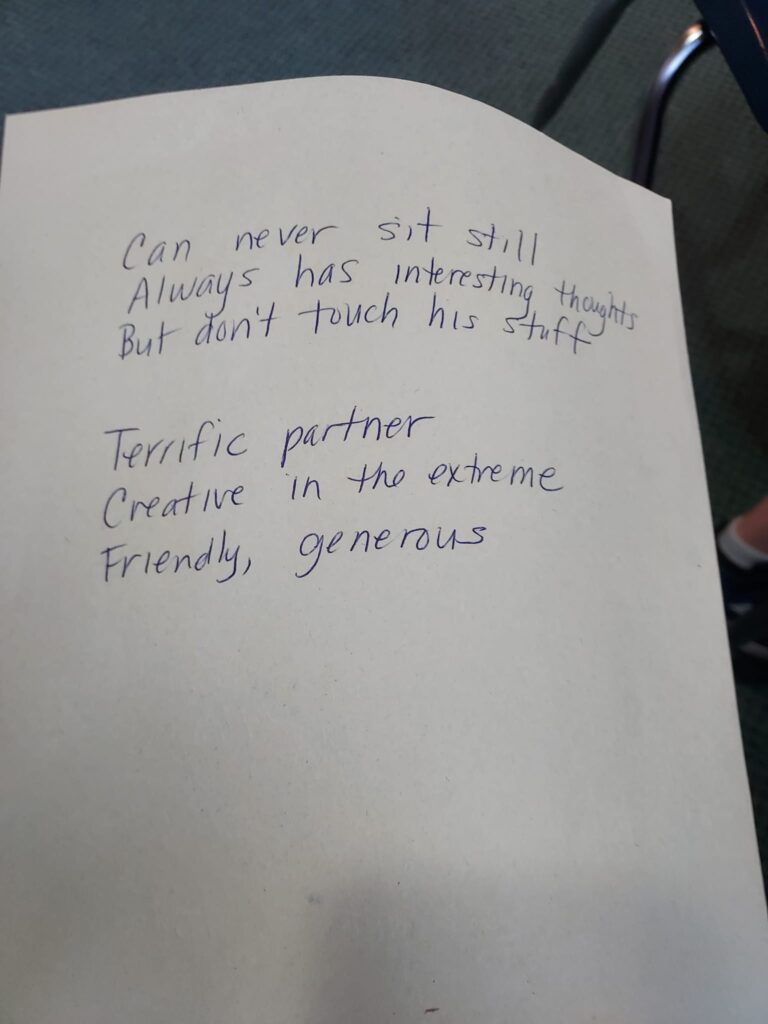 Can never sit still
Always has interesting thoughts
But don't touch his stuff
Terrific partner
Creative in the extreme
Friendly, generous